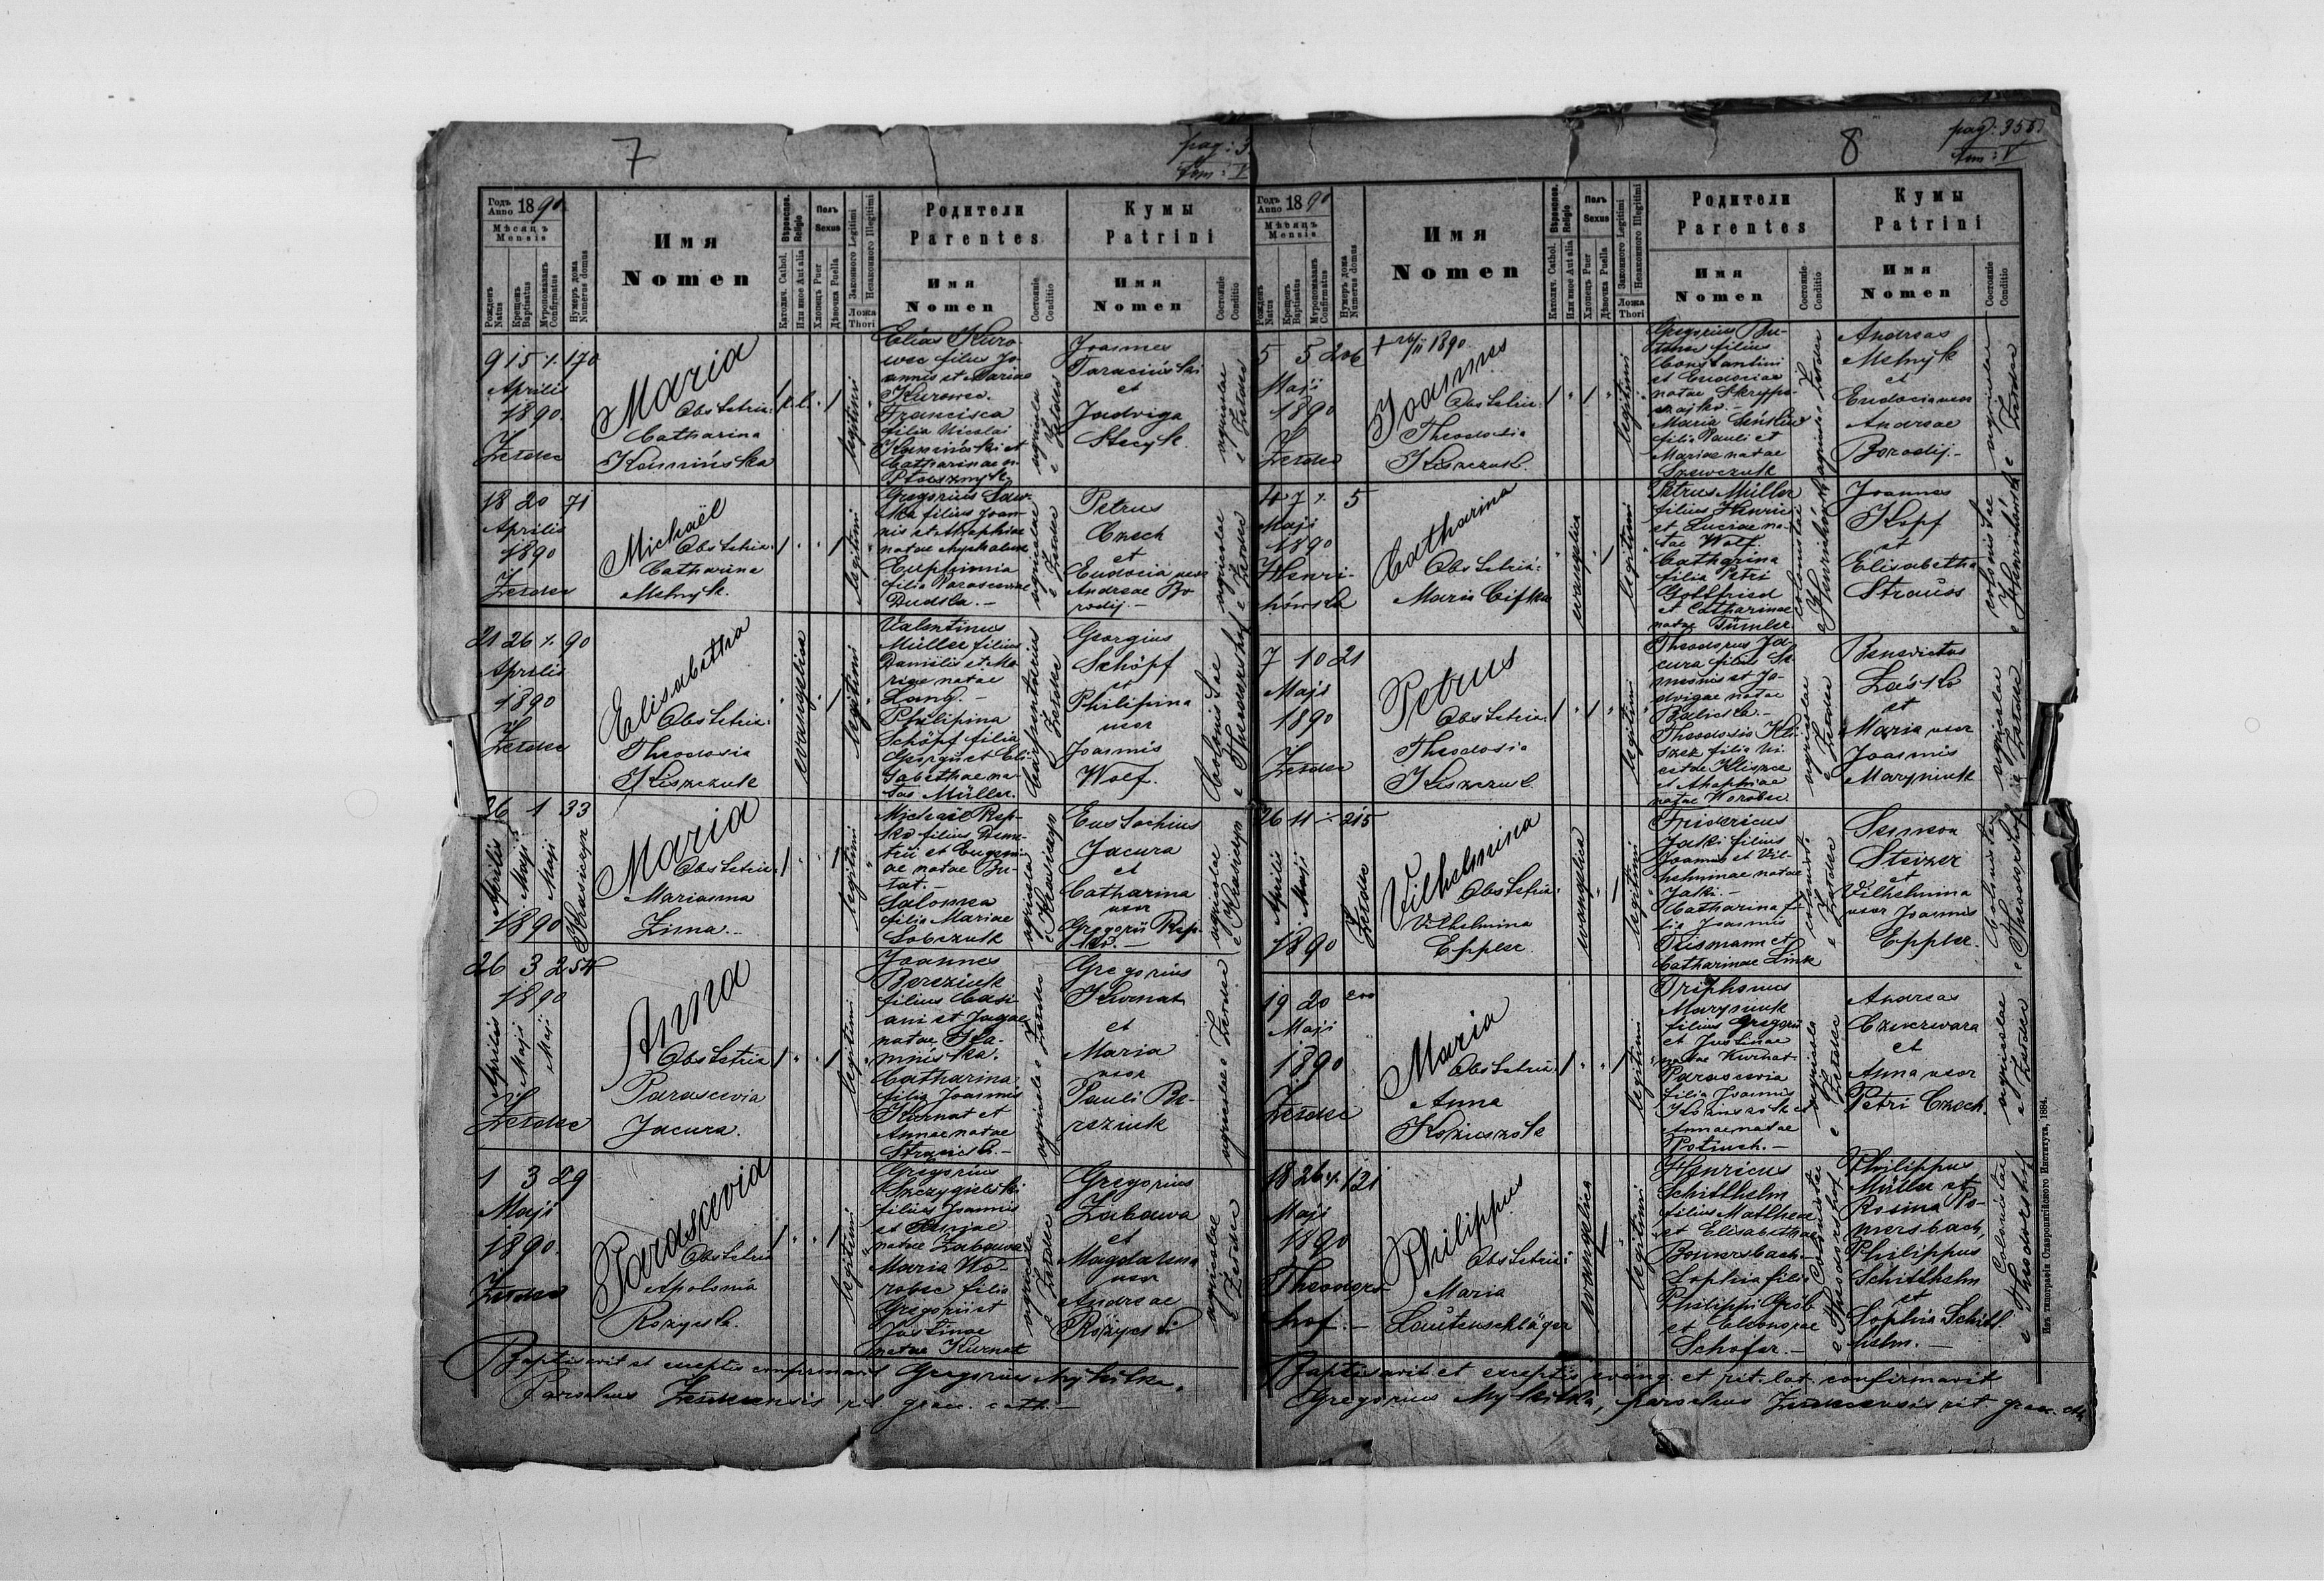 7
pag: 3
tom: V
Годъ Anno 1890
Мѣсяцъ Mensis
Рожденъ Natus
Крещенъ Baptisatus
Мѵропомазанъ Confirmatus
Нумеръ дома Numerus domus
Имя
Nomen
Вѣроиспов. Religio
Католич. Cathol.
Или иное Aut alia
Полъ Sexus
Хлопецъ Puer
Дѣвочка Puella
Законного Legitimi
Незаконного Illegitimi
Ложа Thori
Родители
Parentes
Имя
Nomen
Состояніе Conditio
Кумы
Patrini
Имя
Nomen
Состояніе Conditio
9 15 170
Aprilis
1890.
Maria
Obstetrix:
Catharina
Kamińska
r. l.
1
legitimi
Elias Kuro-
wec filius Jo-
annis et Mariae
Kurowec.
Francisca
filia Nicolai
Kamiński et
Catharinae n.
agricola
Joannes
Taraciński
et
Jadviga
Stecyk
agricolae
18 20 71
Aprilis
1890
Michaël
Obstetrix:
Catharina
Melnyk.
legitimi
Gregorius
filius Joan-
nis et Ahaphiae
natae
Euphimia
filia Parasceviae
Dudzka.-
agricolae
Petrus
Czech
et
Eudocia uxor
Andreae Bo-
rodij.-
agricolae
21 26 90
Aprilis
1890
Elisabetha
Obstetrix:
Theodosia
Kiszczuk
evangelica
legitimi
Valentinus
Müller filius
Danielis et Ma-
riae natae
Lang.-
Philipina
Schöpf filia
Georgii et Eli-
sabethae na-
tae Müller.
Carpentarius
Georgius
Schöpf
et
Philipina
uxor
Joannis
Wolf.
Colonistae
e Theodorshof
26 1 33
Aprilis
Maji
Maji
1890
Maria
Obstetrix:
Marianna
Zima.-
legitimi
Michaël Rep-
ko filius Deme-
trii et Eugeni-
ae natae Bu-
tat.-
Salomea
filia Mariae
Sobczuk
agricola
Eustachius
Jacura
et
Catharina
uxor
Gregorii Rep-
ko.-
agricolae
26 3 254
1890
Aprilis
Maji
Maji
Anna
Obstetrix
Parascevia
Jacura.
legitimi
Joannes
Bereziuk
filius Cassi-
ani et Jagae
natae
Catharina
filia Joannis
Kurnat et
Annae natae
agricolae
Gregorius
Kurnat
et
Maria
uxor
Pauli Be-
reziuk
agricolae
1 3 29
Maji
1890.
Parascevia
Obstetrix
Apolonia
Rożycka.
legitimi
Gregorius
Szczygielski
filius Joannis
et
natae Zabawa
Maria Wo-
robec filia
Gregorii et
Justinae
natae Kurnat
agricola
Gregorius
Zabawa
et
Magdalena
uxor
Andreae
Rożycki
agricolae
Baptisavit et exceptis confirmavit Gregorius Mykitka,
Parochus rit. graec. cath.-
8
pag: 355
tom: V
Годъ Anno 1890
Мѣсяцъ Mensis
Рожденъ Natus
Крещенъ Baptisatus
Мѵропомазанъ Confirmatus
Нумеръ дома Numerus domus
Имя
Nomen
Вѣроиспов. Religio
Католич. Cathol.
Или иное Aut alia
Полъ Sexus
Хлопецъ Puer
Дѣвочка Puella
Законного Legitimi
Незаконного Illegitimi
Ложа Thori
Родители
Parentes
Имя
Nomen
Состояніе Conditio
Кумы
Patrini
Имя
Nomen
Состояніе Conditio
5 5 206
Maji
1890
1890.
Joannes
Obstetrix:
Theodosia
Kiszczuk.
legitimi
Gregorius
filius
Constantini
et Eudociae
natae
Maria
filia Pauli et
Mariae natae
Szewczuk
Andreas
Melnyk
et
Eudocia uxor
Andreae
Borodij.-
agricolae
4 7 5
Maji
1890
Henri-
chówka
Catharina
Obstetrix:
Maria Cifka
evangelica
legitimi
Petrus Müller
filius Henrici
et Luciae na-
tae Wolf.
Catharina
filia Petri
Gottfried
et Catharinae
natae Tümler.
colonistae
Joannes
Kopf
et
Elisabetha
Strauss
colonistae
e Henrichówka
7 10 21
Maji
1890
Petrus
Obstetrix:
Theodosia
Kiszczuk
legitimi
Theodorus Ja-
cura filius Si-
meonis et Ja-
dvigae natae
Theodosia Kli-
szcz filia Ni-
cetae
et Ahaphiae
natae Worobec
agricolae
Benedictus
Zaśko
et
Maria uxor
Joannis
Maryniuk
agricolae
26 11 215
Aprilis
Maji
1890
Vilhelmina
Obstetrix:
Vilhelmina
Eppler.
evangelica
legitimi
Fridericus
Jaki filius
Joannis et Vil-
helminae natae
Jaki.-
Catharina fi-
lia Joannis
et
Catharinae Link
colonist.
Simeon
et
Vilhelmina
uxor Joannis
Eppler.
Colonistae
e Theodorshof
19 20 200
Maji
1890
Maria
Obstetrix
Anna
legitimi
Triphonus
Maryniuk
filius Gregorii
et Justinae
natae Kurnat.
Parascevia
filia Joannis
Annae natae
agricola
Andreas
Czwerwara
et
Anna uxor
Petri Czech
agricolae
18 26 121
Maji
1890
Theodors-
hof.-
Philippus
Obstetrix:
Maria
Lautenschläger
evangelica
legitimi
Henricus
Schitthelm
filius Mathiae
et Elisabethae
Bomersbach.
Sophia filia
Philippi Gröb
et Eleonorae
Schöfer.-
Colonistae
e Theodorshof
Philippus
Müller et
Rosina Po-
mersbach,
Philippus
Schitthelm
et
Sophia Schitt-
helm.-
Colonistae
e Theodorshof
Baptisavit et exceptis evang. et rit. lat. confirmavit
Gregorius Mykitka, parochus rit. graec. cath.
Изъ типографіи Ставропигійского Института, 1884.